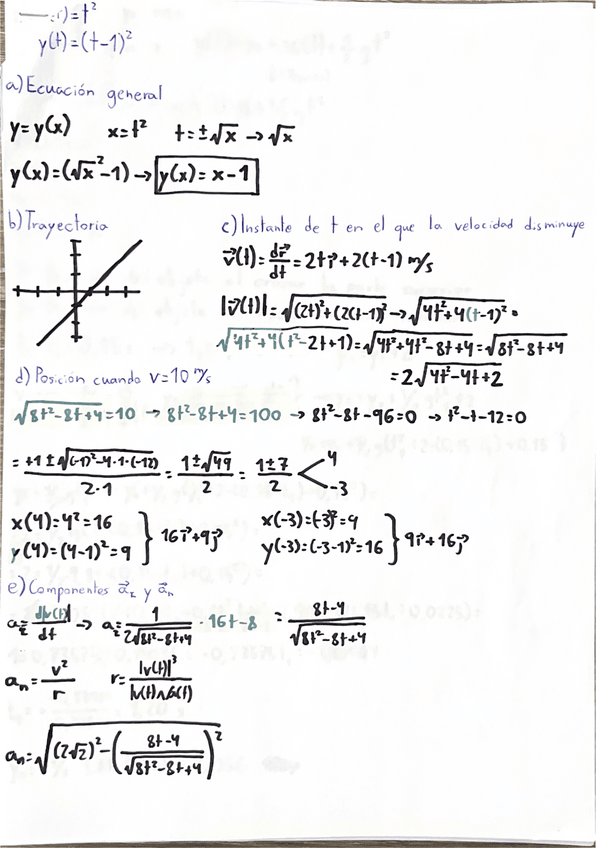 x(t)=t²
y(t)=(t-1)²
a) Ecuación general
y=y(x) x=t² t=±√x → √x
y(x)=(√x²-1) → y(x)=x-1
b) Trayectoria
c) Instante de t en el que la velocidad disminuye
v⃗(t)=dr⃗/dt=2t i⃗+2(t-1) m/s
|v⃗(t)|=√((2t)²+(2(t-1))²) → √(4t²+4(t-1)²)
√(4t²+4(t²-2t+1))=√(4t²+4t²-8t+4)=√(8t²-8t+4)
=2√(4t²-4t+2)
d) Posición cuando v=10 m/s
√(8t²-8t+4)=10 → 8t²-8t+4=100 → 8t²-8t-96=0 → t²-t-12=0
=(+1±√((-1)²-4·1·(-12)))/(2·1)=(1±√49)/2=(1±7)/2 < 4
-3
x(4)=4²=16
y(4)=(4-1)²=9 } 16i⃗+9j⃗
x(-3)=(-3)²=9
y(-3)=(-3-1)²=16 } 9i⃗+16j⃗
e) Componentes a⃗t y a⃗n
at=d|v(t)|/dt → at=1/(2√(8t²-8t+4))·16t-8=(8t-4)/√(8t²-8t+4)
an=v²/r r=|v(t)|³/|v(t)∧a(t)|
an=√((2√2)²-((8t-4)/√(8t²-8t+4))²)